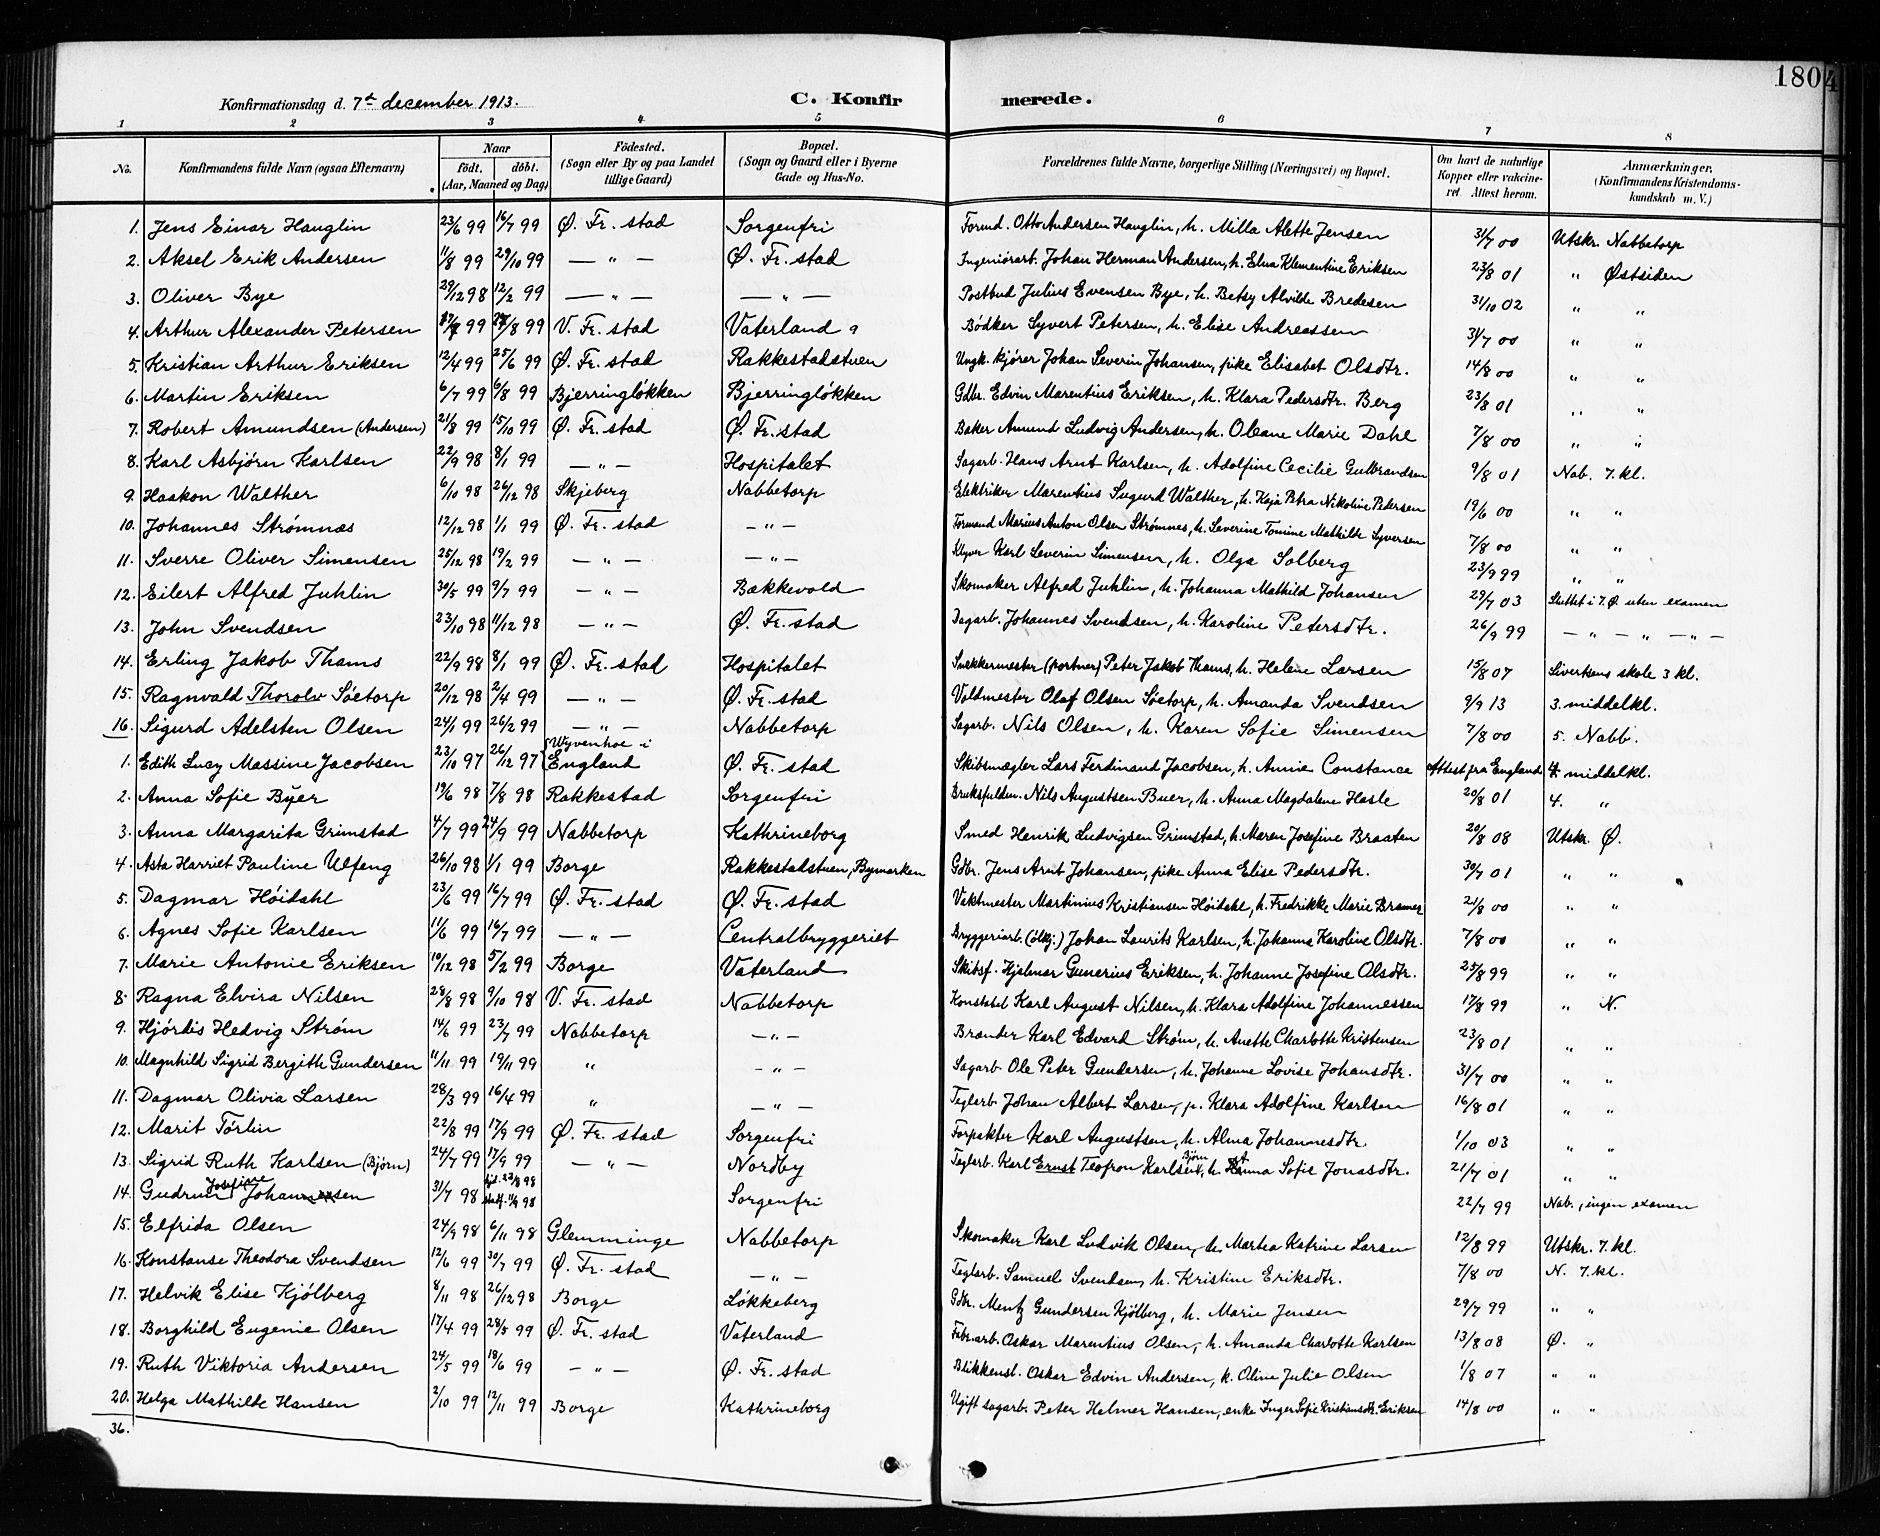 180
4
Konfirmationsdag d. 7de december 1913.
C. Konfirmerede.
1 2 3 4 5 6 7 8
No. | Konfirmandens fulde Navn (ogsaa Efternavn) | Naar født. døbt. (Aar, Maaned og Dag) | Fødested. (Sogn eller By og paa Landet tillige Gaard) | Bopæl. (Sogn og Gaard eller i Byerne Gade og Hus-No. | Forældrenes fulde Navne, borgerlige Stilling (Næringsvei) og Bopæl. | Om havt de naturlige Kopper eller vakcineret Attest herom. | Anmærkninger. (Konfirmandens Kristendomskundskab m. V.)
1. Jens Einar Hauglin 23/6 99 16/7 99 Ø. Fr. stad Sorgenfri Formd. Otto Andersen Hauglin, h. Milla Alette Jensen 31/7 00 Utskr. Nabbetorp
2. Aksel Erik Andersen 11/8 99 29/10 99 — " — Ø. Fr. stad Ingeniørarb. Johan Herman Andersen, h. Elna Klementine Eriksen 23/8 01 " Østsiden
3. Oliver Bye 29/12 98 12/2 99 — " — — " — Postbud Julius Evensen Bye, h. Betsy Alvilde Bredesen 31/10 02 " "
4. Arthur Alexander Petersen 99 /8 99 V. Fr. stad Vaterland 9 Bødker Syvert Petersen, h. Elise Andreassen 31/7 00 " "
5. Kristian Arthur Eriksen 12/4 99 25/6 99 Ø. Fr. stad Rakkestadstuen Ungk. kjører Johan Severin Johansen, pike Elisabet Olsdtr. 14/8 00 " "
6. Martin Eriksen 6/7 99 6/8 99 Bjerringløkken Bjerringløkken Gdbr. Edvin Marentius Eriksen, h. Klara Pedersdtr. Berg 23/8 01 " "
7. Robert Amundsen (Andersen) 21/8 99 15/10 99 Ø. Fr. stad Ø. Fr. stad Baker Amund Ludvig Andersen, h. Oleane Marie Dahl 7/8 00 " "
8. Karl Asbjørn Karlsen 22/9 98 8/1 99 — " — Hospitalet Sagarb. Hans Arnt Karlsen, h. Adolfine Cecilie Gulbrandsen 9/8 01 Nab. 7. kl.
9. Haakon Walther 6/10 98 26/12 98 Skjeberg Nabbetorp Elektriker Marentius Sugurd Walther, h. Kaja Petra Nikoline Pedersen 19/6 00 " "
10. Johannes Strømnæs 12/12 98 1/1 99 Ø. Fr. stad — " — Formand Marius Anton Olsen Strømnes, h. Severine Tomine Mathilde Syversen 7/8 00 " "
11. Sverre Oliver Simensen 25/12 98 19/2 99 — " — — " — Klyver Karl Severin Simensen, h. Olga Solberg 23/9 99 " "
12. Eilert Alfred Juhlin 30/5 99 9/7 99 — " — Bækkevold Skomaker Alfred Juhlin, h. Johanna Mathild Johansen 29/7 03 Sluttet i 7. Ø. uten examen
13. John Svendsen 23/10 98 11/12 98 — " — Ø. Fr. stad Dagarb. Johannes Svendsen, h. Karoline Petersdtr. 26/9 99 — " — " — " —
14. Erling Jakob Thams 22/9 98 8/1 99 Ø. Fr. stad Hospitalet Snekkermester (portner) Peter Jakob Thams, h. Helene Larsen 15/8 07 Sivertsens skole 3 kl.
15. Ragnvald Thorolv Søetorp 20/12 98 2/4 99 — " — Ø. Fr. stad Voldmester Olaf Olsen Søetorp, h. Amanda Svendsen 9/9 13 3. middelkl.
16. Sigurd Adelsten Olsen 24/1 99 26/2 99 — " — Nabbetorp Sagarb. Nils Olsen, h. Karen Sofie Simensen 7/8 00 5. Nabb.
1. Edith Lucy Massine Jacobsen 23/10 97 26/12 97 Wyvenhoe i England Ø. Fr. stad Skibsmægler Lars Ferdinand Jacobsen, h. Annie Constance Attest fra England 4. middelkl.
2. Anna Sofie Büer 19/6 98 7/8 98 Rakkestad Sorgenfri Bruksfuldm. Nils Augustsen Buer, h. Anna Magdalene Hasle 20/8 01 4. "
3. Anna Margarita Grimstad 4/7 99 24/9 99 Nabbetorp Kathrineborg Smed Henrik Ludvigsen Grimstad, h. Maren Josefine Braaten 20/8 08 Utskr. Ø.
4. Asta Harriet Pauline Ulfeng 26/10 98 1/1 99 Borge Rakkestadstuen, Bymarken Gdbr. Jens Arnt Johansen, pike Anna Elise Pedersdtr. 30/7 01 " "
5. Dagmar Høidahl 23/6 99 16/7 99 Ø. Fr. stad Ø. Fr. stad Vaktmester Martinius Kristiansen Høidahl, h. Fredrikke Marie 21/8 00 " "
6. Agnes Sofie Karlsen 11/6 99 16/7 99 — " — Centralbryggeriet Bryggeriarb. (ølkj.) Johan Laurits Karlsen, h. Johanna Karoline Olsdtr. 7/8 00 " "
7. Marie Antonie Eriksen 10/12 98 5/2 99 Borge Vaterland Skibsf. Hjelmar Gunerius Eriksen, h. Johanne Josefine Olsdtr. 25/8 99 " "
8. Ragna Elvira Nilsen 28/8 98 9/10 98 V. Fr. stad Nabbetorp Konstabel Karl August Nilsen, h. Klara Adolfine Johannessen 17/8 99 " N.
9. Hjørdis Hedvig Strøm 14/6 99 23/7 99 Nabbetorp — " — Brænder Karl Edvard Strøm, h. Anette Charlotte Kristensen 23/8 01 " "
10. Magnhild Sigrid Bergithe Gundersen 11/11 99 19/11 99 " — " — Sagarb. Ole Peter Gundersen, h. Johanne Lovise Johansdtr. 31/7 00 " "
11. Dagmar Olivia Larsen 28/3 99 16/4 99 " — " — Teglarb. Johan Albert Larsen, p. Klara Adolfine Karlsen 16/8 01 " "
12. Marit Tørlin 22/8 99 17/9 99 Ø. Fr. stad Sorgenfri Forpakter Karl Augustsen, h. Alma Johannesdtr. 1/10 03 " "
13. Sigrid Ruth Karlsen (Bjørn) 24/7 99 17/9 99 — " — Nordby Teglarb. Karl Ernst Teofron Karlsen Bjørn, h. Anna Sofie Jonasdtr. 21/7 01 " "
14. Gudrun Josefine Johansen 31/7 98 hjd. 22/8 98 stadf. 11/9 98 Sorgenfri 22/7 99 Nab., ingen examen
15. Elfrida Olsen 24/9 98 6/11 98 Glemminge Nabbetorp Skomaker Karl Ludvik Olsen, h. Martea Katrine Larsen 12/8 99 Utskr. 7. kl.
16. Konstanse Theodora Svendsen 12/6 99 30/7 99 Ø. Fr. stad — " — Teglarb. Samuel Svendsen, h. Kristine Eriksdtr. 7/8 00 N. 7. kl.
17. Helvik Elise Kjølberg 8/11 98 26/12 98 Borge Løkkeberg Gdbr. Mentz Gundersen Kjølberg, h. Marie Jensen 29/7 99 " "
18. Borghild Eugenie Olsen 17/4 99 28/5 99 Ø. Fr. stad Vaterland Fabr.arb. Oskar Marentius Olsen, h. Amanda Charlotte Karlsen 13/8 08 Ø. "
19. Ruth Viktoria Andersen 24/5 99 18/6 99 — " — Ø. Fr. stad Blikkensl. Oskar Edvin Andersen, h. Oline Julie Olsen 1/8 07 " "
20. Helga Mathilde Hansen 2/10 99 12/11 99 Borge Kathrineborg Ugift sagarb. Peter Helmer Hansen, enke Inger Sofie Kristiansdtr. Eriksen 14/8 00 " "
36.